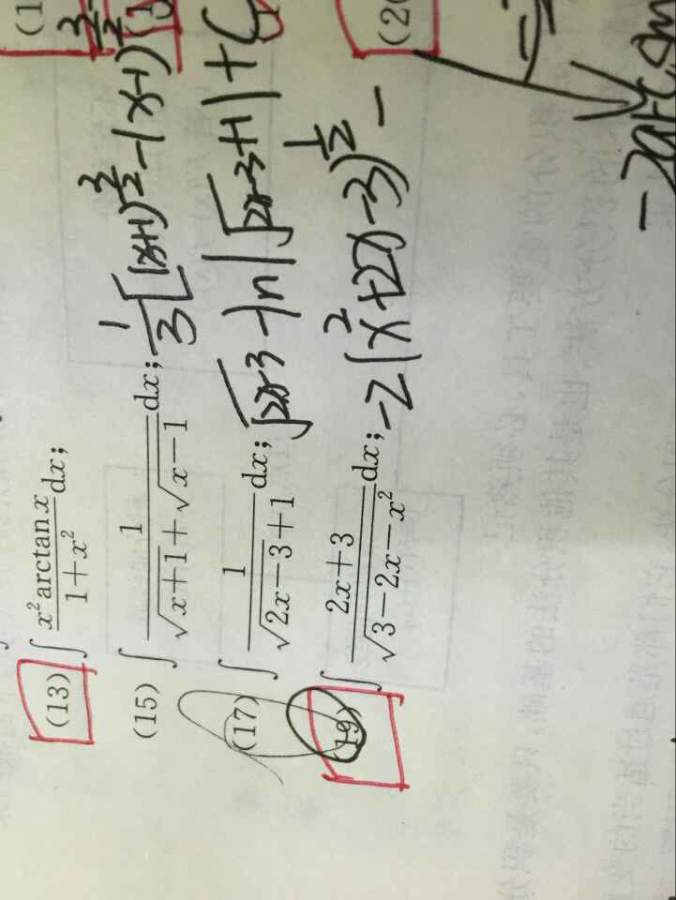 (13) ∫ x² arctan x / (1+x²) dx;
(15) ∫ 1 / (√(x+1)+√(x−1)) dx; 1/3 [(x+1)^(3/2) − (x−1)^(3/2)]
(17) ∫ 1 / (√(2x−3)+1) dx; √(2x−3) − ln|√(2x−3)+1| + C
(19) ∫ (2x+3) / √(3−2x−x²) dx; −2(x²+2x−3)^(1/2) −